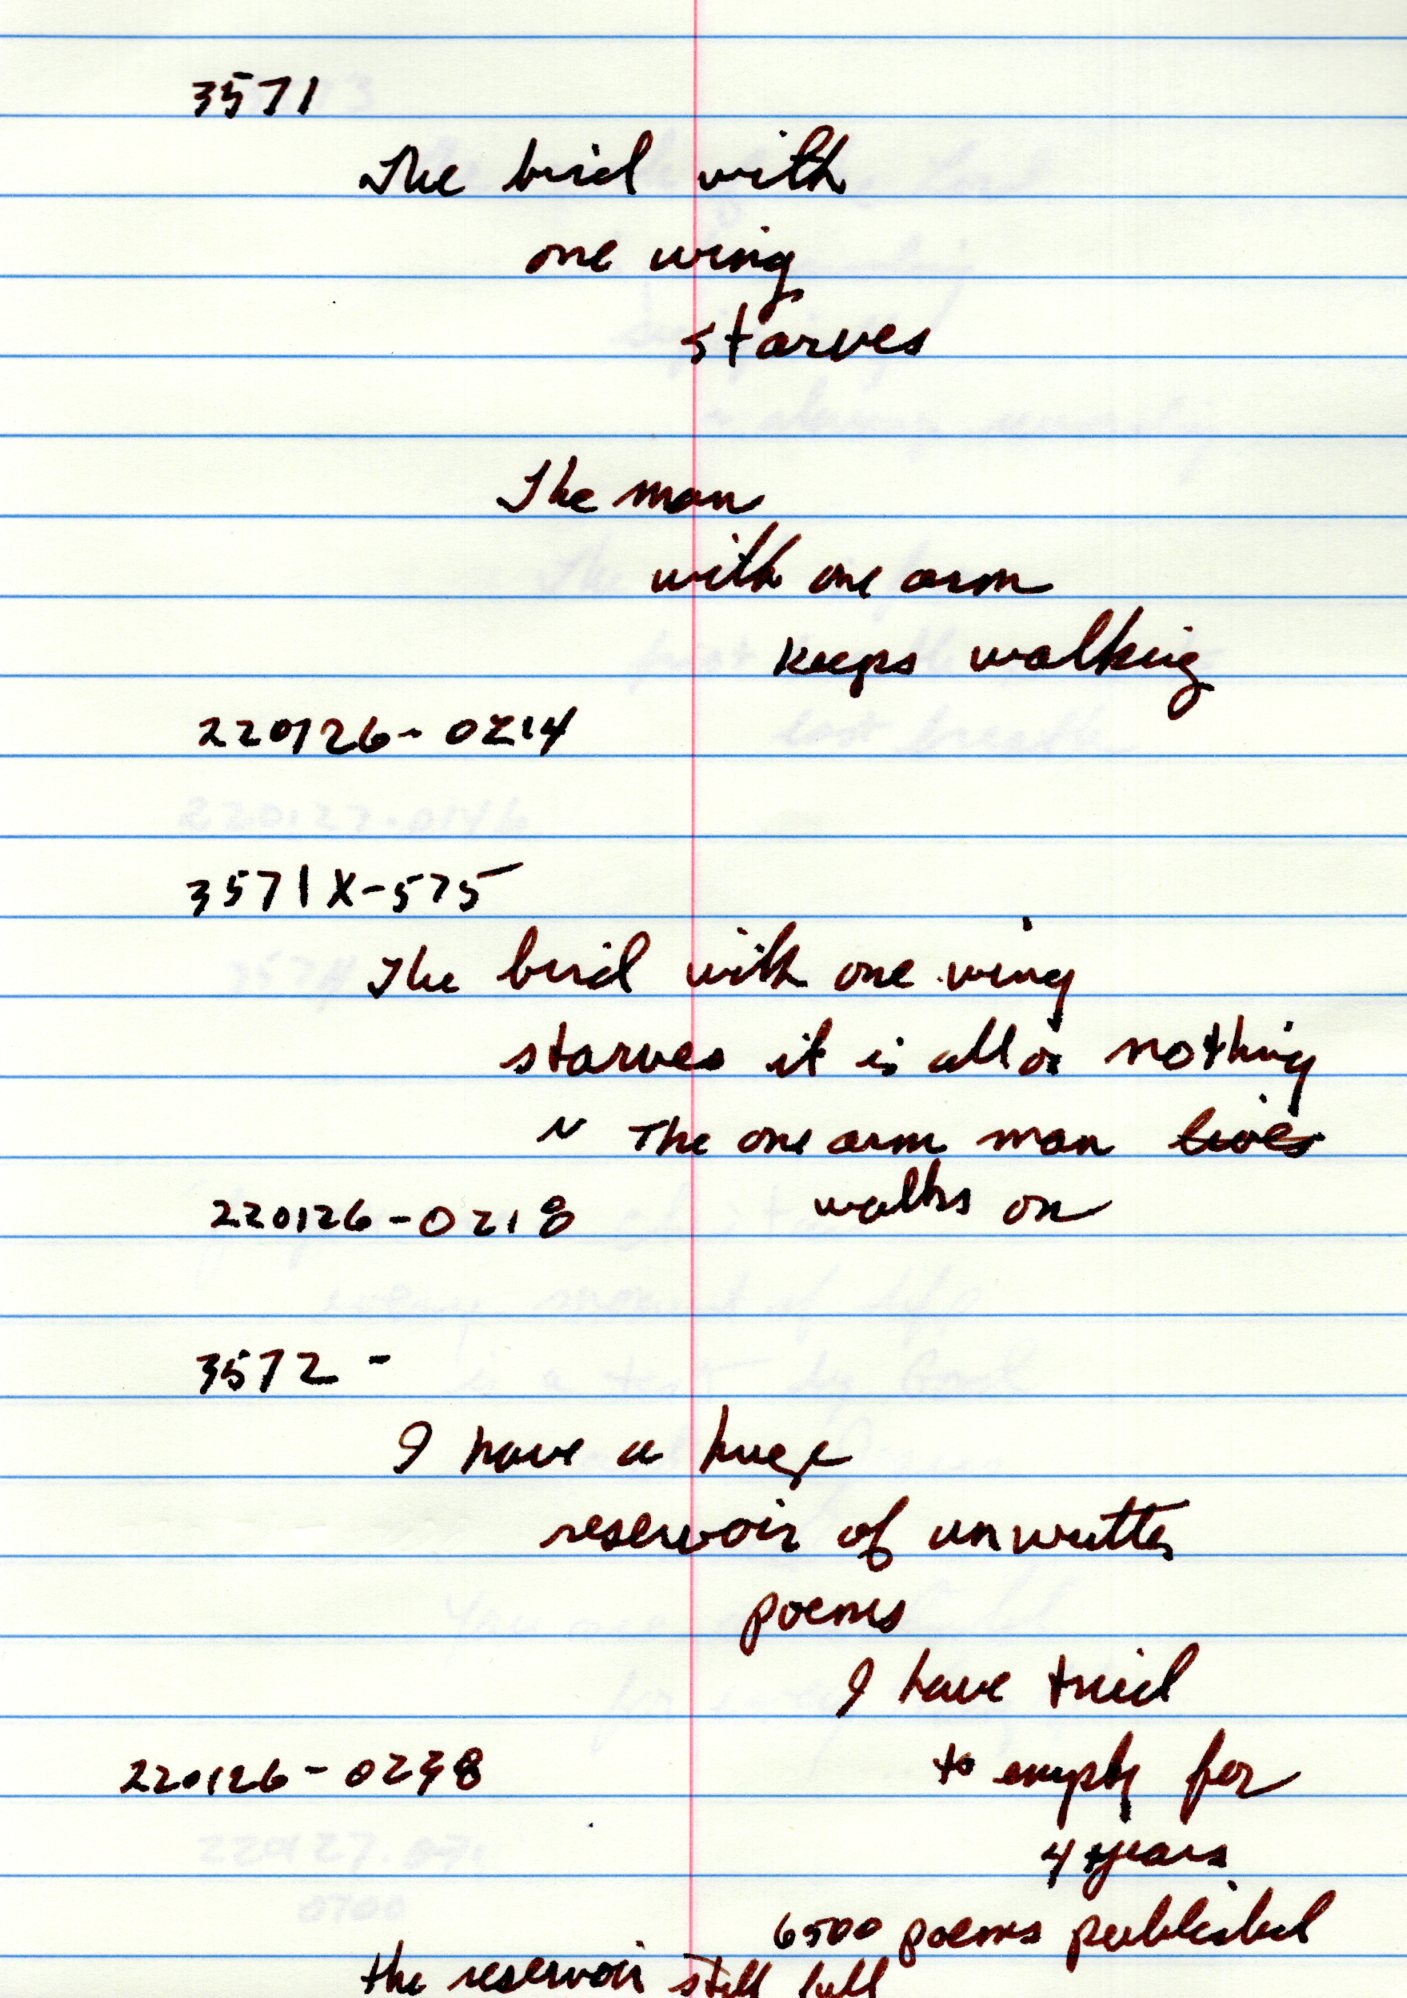 3571
The bird with
one wing
starves
The man
with one arm
keeps walking
220126-0214
3571X-575
The bird with one wing
starves it is all or nothing
The one arm man lives
walks on
220126-0218
3572 -
I have a huge
reservoir of unwritten
poems
I have tried
to empty for
220126-0238
4 years
6500 poems published
the reservoir still full